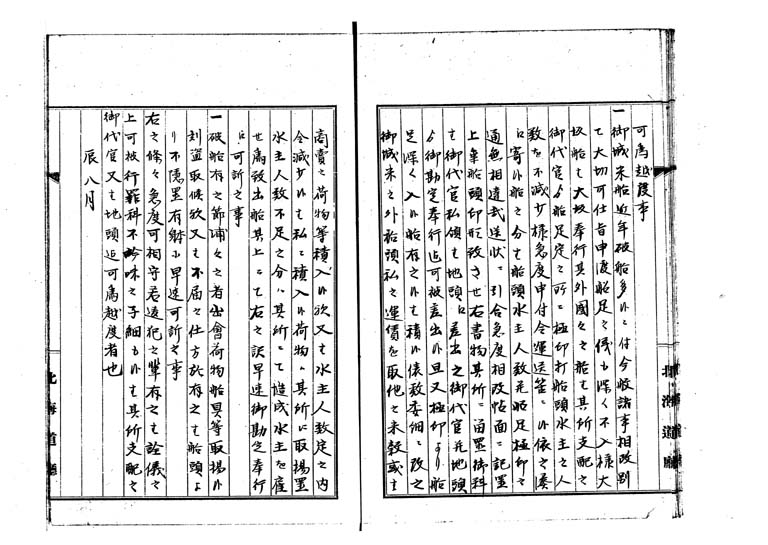 可為越度事
一御城米船近年破船多ハニ付今般諸事相改別
て大切可仕旨申渡船足之儀も深く不入様大
坂船ハ大坂奉行其外国々之船ハ其所支配之
御代官ゟ船足定之所ニ極印打船頭水主之人
数を不減少様急度申付令運送筈ニ候依之湊
江寄候船之分ハ船頭水主人数并船足極印之
通無相違哉送状ニ引合急度相改帖面ニ記置
上乗船頭印形致させ右書物其所ニ留置御料
ハ御代官私領ハ地頭江差出之御代官并地頭
ゟ御勘定奉行迄可被差出候且又極印より船
足深く入候船有之候ハヽ積候俵数委細ニ改之
御城米之外船頭私之運賃を取他之米穀或ハ
商売之荷物等積入候歟又ハ水主人数定之内
令減少候ハヽ私ニ積入候荷物ハ其所江取揚置
水主人数不足之分ハ其所ニて慥成水主を雇
せ為致出船其上ニて右之訳早速御勘定奉行
江可訴之事
一破船有之節浦々之者出会荷物船具等取揚候
刻盗取候歟又ハ不届之仕方於有之ハ船頭よ
り不隠置有躰ニ早速可訴之事
右之條々急度可相守若違犯之輩有之ハ詮儀之
上可被行罪科不吟味之子細も候ハヽ其所支配之
御代官又ハ地頭迄可為越度者也
辰八月
北海道庁